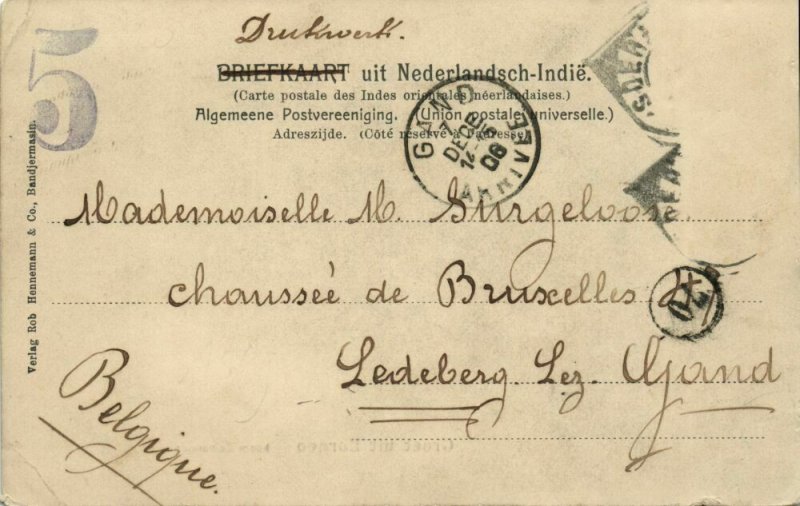 Drukwerk.
5
BRIEFKAART uit Nederlandsch-Indië.
(Carte postale des Indes orientales néerlandaises.)
Algemeene Postvereeniging. (Union postale universelle.)
Adreszijde. (Côté réservé à l'adresse.)
GAND
DEC
06
ARRIVEE
Mademoiselle M. Surgeloose.
chausseé de Bruxelles
Ledeberg. Lez. Gand
Belgique.
Verlag Rob Hennemann & Co., Bandjermasin.